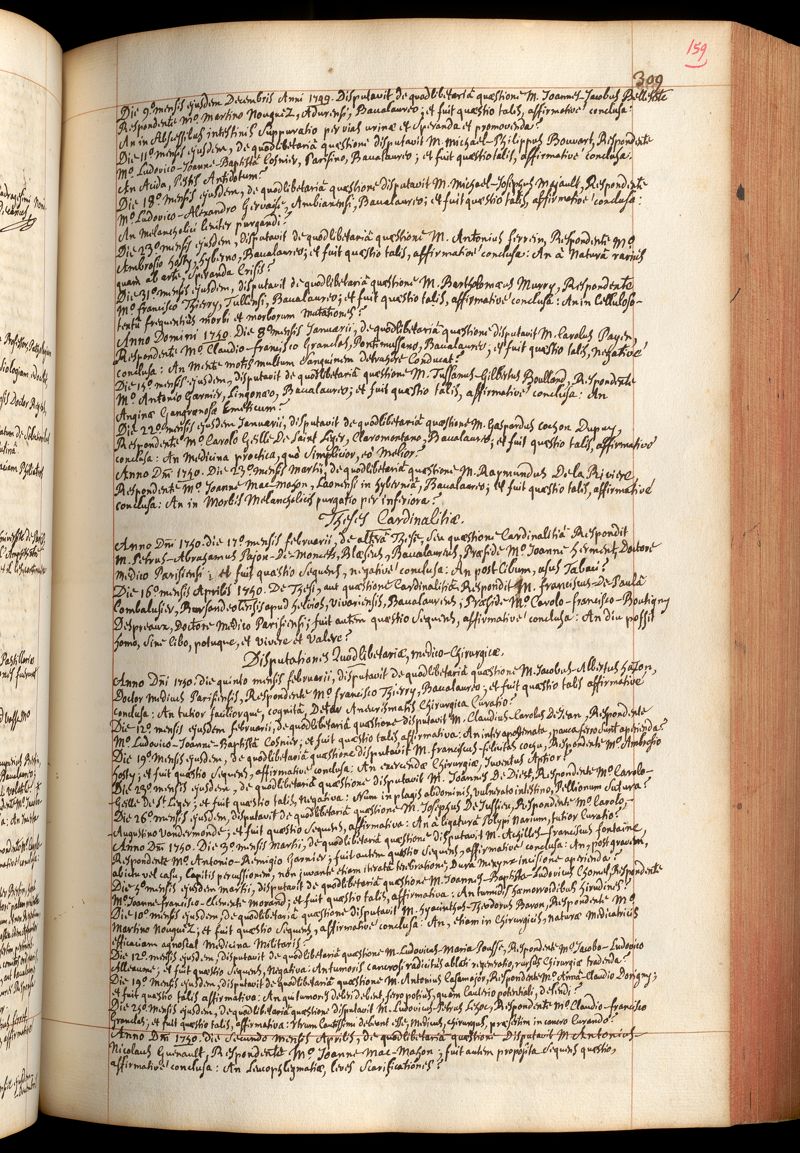 159
309
Die 9º mensis ejusdem Decembris Anni 1749. Disputavit de quodlibetariâ quæstione M. Joannes-Jacobus Belleteste
Respondente Mº Martino Nouguéz, Adurensi, Baccalaureo; et fuit quæstio talis, affirmative conclusa:
An in Abscessibus intestinis suppuratio per vias urinæ et Speranda et promovenda?
Die 11º mensis ejusdem, de quodlibetariâ quæstione disputavit M. Michael-Philippus Bouvart, Respondente
Mº Ludovico-Joanne-Baptistâ Cosnier, Parisino, Baccalaureo; et fuit quæstio talis, affirmative conclusa.
An Acida, Pestis Antidotum?
Die 18º mensis ejusdem, de quodlibetariâ quæstione disputavit M. Michael-Josephus Majault, Respondente
Mº Ludovico-Alexandro Gervaise, Ambianensi, Baccalaureo; et fuit quæstio talis, affirmative conclusa:
An melancholici leniter purgandi?
Die 23º mensis ejusdem, disputavit de quodlibetariâ quæstione M. Antonius ferrein, Respondente Mº
Ambrosio hosty, hyberno, Baccalaureo; et fuit quæstio talis, affirmative conclusa: An à Naturâ rarius
quam ab arte, Speranda Crisis?
Die 31º mensis ejusdem, disputavit de quodlibetariâ quæstione M. Bartholomæus Murry, Respondente
Mº francisco Thierry, Tullensi, Baccalaureo; et fuit quæstio talis, affirmative conclusa: An in Celluloso-
textu frequentius morbi et morborum mutationes?
Anno Domini 1750. Die 8º mensis Januarii, de quodlibetariâ quæstione disputavit M. Carolus Payen,
Respondente Mº Claudio-francisco Granclas, Pontimussano, Baccalaureo; et fuit quæstio talis, negative
conclusa: An Mente motis multum Sanguinem detrahere Conducat?
Die 15º mensis ejusdem, disputavit de quodlibetariâ quæstione M. Tussanus-Gilbertus Boulland, Respondente
Mº Antonio Garnier, Lingonæo, Baccalaureo; et fuit quæstio talis, affirmative conclusa: An
Anginæ Gangrænosæ Emeticum?
Die 22º mensis ejusdem Januarii, disputavit de quodlibetariâ quæstione M. Gaspardus cochon Dupuy,
Respondente Mº Carolo Gelle-De Saint Liger, Claromontano, Baccalaureo; et fuit quæstio talis, affirmative
conclusa: An Medicina practica, quo Simplicior, eò Melior?
Anno Dñi 1750. Die 23º mensis Martii, de quodlibetariâ quæstione M. Raymundus De la Riviere
Respondente Mº Joanne Mac-mahon, Laonensi in hyberniâ, Baccalaureo; et fuit quæstio talis, affirmative
conclusa: An in Morbis Melancholicis purgatio per inferiora?
Theses Cardinalitiæ.
Anno Dñi 1750. die 17º mensis februarii, de alterâ Thesi, Seu quæstione Cardinalitiâ Respondit
M. Petrus-Abrahamus Pajon-De-Moncets, Blæsensis, Baccalaureus, Præside Mº Joanne herment, Doctore
Medico Parisiensi; et fuit quæstio Sequens, negative conclusa: An post Cibum, usus Tabaci?
Die 16º mensis Aprilis 1750. De Thesi, aut quæstione Cardinalitiâ Respondit M. franciscus-De-Paulâ
Combalusier, Bursando-olensis apud helvios, Vivariensis, Baccalaureus; Præside Mº Carolo-francisco-Boutigny
Despreaux, Doctore Medico Parisiensi; fuit autem quæstio Sequens, affirmative conclusa: An diu possit
homo, Sine cibo, potuque, et vivere et Valere?
Disputationes Quodlibetariæ, medico-Chirurgicæ.
Anno Dñi 1750. die quinto mensis februarii, disputavit de quodlibetariâ quæstione M. Jacobus-Albertus hazon,
Doctor Medicus Parisiensis, Respondente Mº francisco Thierry, Baccalaureo; et fuit quæstio talis affirmative
conclusa: An tutior faciliorque, cognitâ, Detur Aneurismatis Chirurgica Curatio?
Die 12º mensis ejusdem februarii, de quodlibetariâ quæstione disputavit M. Claudius-Carolus De Jean, Respondente
Mº Ludovico-Joanne-Baptistâ Cosnier; et fuit quæstio talis affirmativa: An inter apostemata, pauca ferro sunt aperienda?
Die 19º Mensis ejusdem, de quodlibetariâ quæstione disputavit M. franciscus-felicitas cochu, Respondente Mº Ambrosio
hosty; et fuit quæstio Sequens, affirmative conclusa: An exercendæ Chirurgiæ, Juventus Aptior?
Die 23º mensis ejusdem, de quodlibetariâ quæstione disputavit M. Joannes De Diest, Respondente Mº Carolo-
Gelle de St Liger; et fuit quæstio talis, negativa: Num in plagis abdominis, vulnerato intestino, Pellionum Sutura?
Die 26º mensis ejusdem, disputavit de quodlibetariâ quæstione M. Josephus De Jussieu, Respondente Mº Carolo-
Augustino Vandermonde; et fuit quæstio Sequens, affirmativa: An à ligaturâ Polypi Narium, tutior Curatio?
Anno Dñi 1750. Die 3º mensis Martii, de quodlibetariâ quæstione disputavit M. Achilles-franciscus fontaine,
Respondente Mº Antonio-Remigio Garnier; fuit autem quæstio Sequens, affirmative conclusa: An, post gravem,
ab ictu vel casu, Capitis percussionem, non juvante etiam iteratâ terebratione, Dura meynx incisione aperienda?
Die 5º mensis ejusdem Martii, disputavit de quodlibetariâ quæstione M. Joannes-Baptista-Ludovicus Chomel, Respondente
Mº Joanne-francisco-Clemente Morand; et fuit quæstio talis, affirmativa: An tumidis hæmorroidibus hirudines?
Die 10º mensis ejusdem, de quodlibetariâ quæstione Disputavit M. hyacinthus-Theodorus Baron, Respondente Mº
Martino Nouguéz; et fuit quæstio Sequens, affirmative conclusa: An, etiam in Chirurgicis, naturæ Medicatricis
efficaciam agnoscat Medicina Militaris?
Die 12º mensis ejusdem, disputavit de quodlibetariâ quæstione M. Ludovicus-Maria Pousse, Respondente Mº Jacobo-Ludovico
Alleaume; et fuit quæstio Sequens, Negativa: An tumoris cancrosi radicitùs ablati repens ratio, rursùs Chirurgiæ tradenda?
Die 19º mensis ejusdem, disputavit de quodlibetariâ quæstione M. Antonius Casamajor, Respondente Mº Aimâ-Claudio Dorigny;
et fuit quæstio talis affirmativa: An qui tumores deleri debent, ferro potiùs, quàm Cauterio potentiali, delendi?
Die 25º mensis ejusdem, de quodlibetariâ quæstione disputavit M. Ludovicus-Petrus Lehoc, Respondente Mº Claudio-francisco
Granclas; et fuit quæstio talis, affirmativa: Utrum Cautissimi debeant esse, Medicus, Chirurgus, præsertim in cancro Curando?
Anno Dñi 1750. die Secundo mensis Aprilis, de quodlibetariâ quæstione Disputavit M. Antonius-
Nicolaus Guenault, Respondente Mº Joanne Mac-Mahon; fuit autem proposita Sequens quæstio,
affirmative conclusa: An Leucophlegmatiæ, leves Scarificationes?